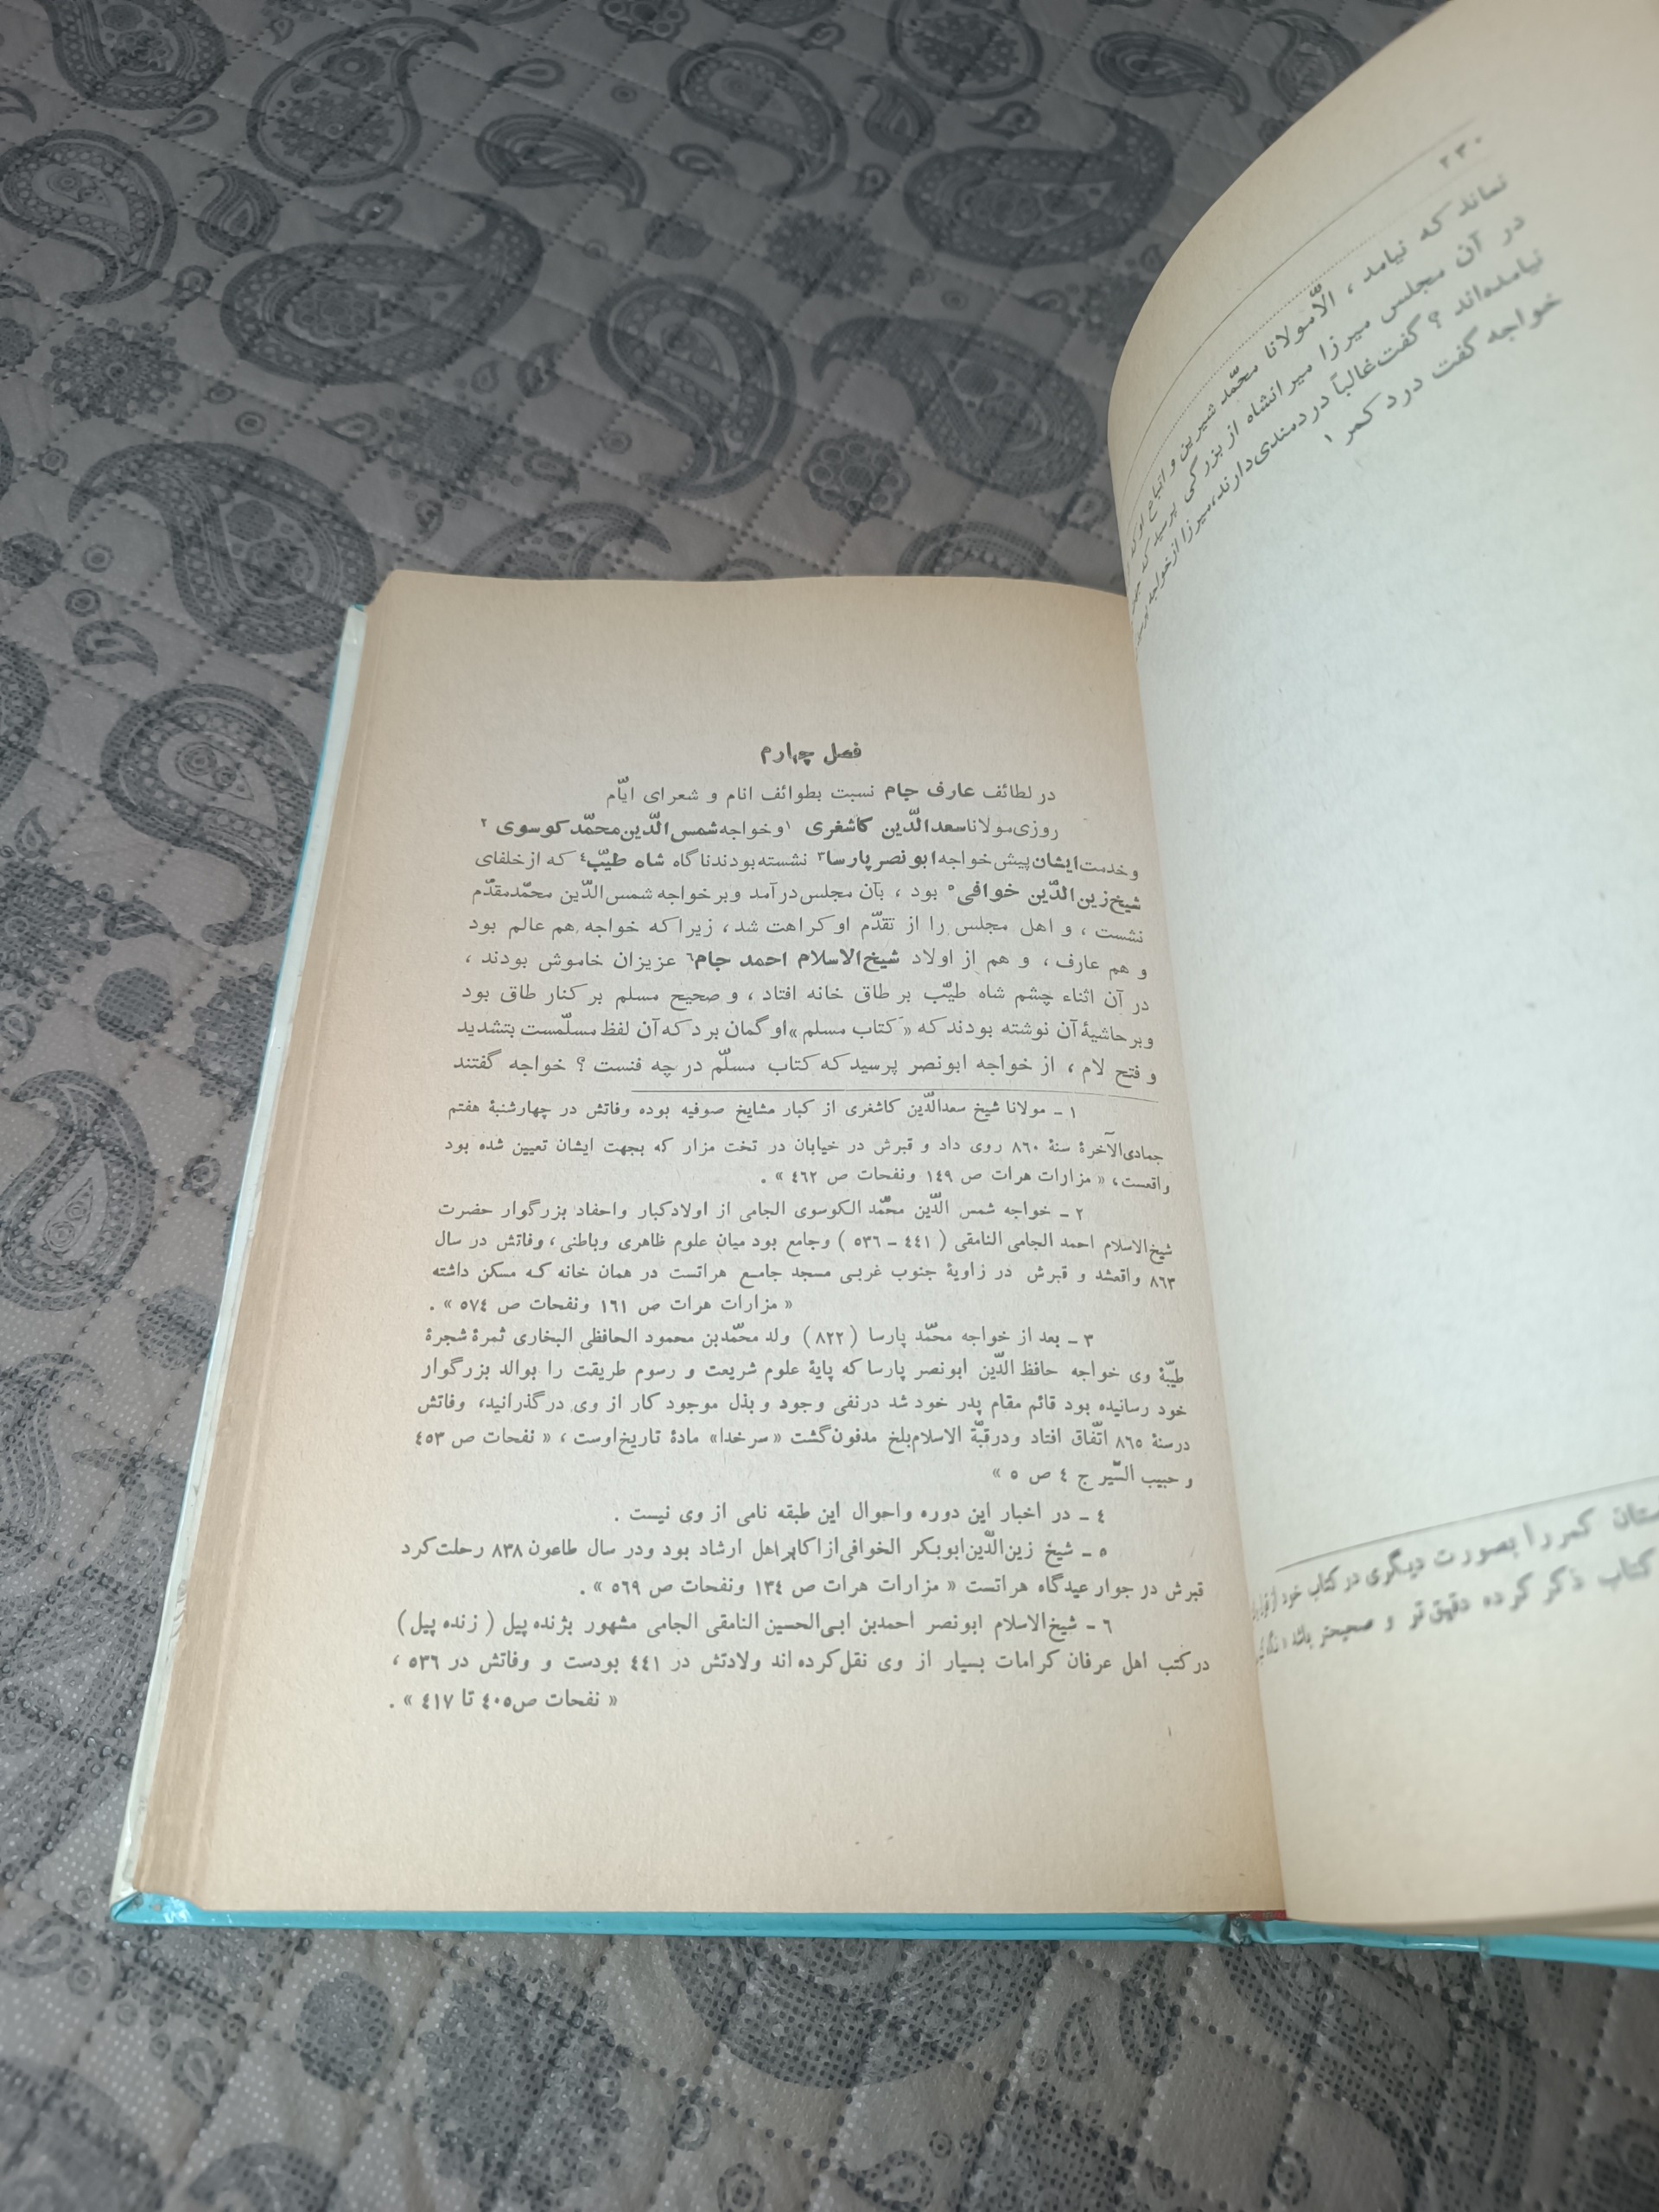 ۲۳۰
نماند که نیامد ، الّامولانا محمّد شیرین و اتباع او که
در آن مجلس میرزا میرانشاه از بزرگی پرسید که
نیامده‌اند ؟ گفت‌غالباً دردمندی‌دارند،میرزا ازخواجه
خواجه گفت درد کمر ۱
کمر را بصورت دیگری در کتاب خود از
کتاب ذکر کرده دقیق‌تر و صحیحتر باشد
فصل چهارم
در لطائف عارف جام نسبت بطوائف انام و شعرای ایّام
روزی‌مولاناسعدالدّین کاشغری ۱وخواجه‌شمس‌الدّین‌محمّدکوسوی ۲
وخدمت‌ایشان‌پیش‌خواجه‌ابونصرپارسا۳ نشسته‌بودندناگاه شاه طیّب٤ که ازخلفای
شیخ‌زین‌الدّین خوافی۵ بود ، بآن مجلس‌درآمد وبرخواجه‌شمس‌الدّین محمّدمقدّم
نشست ، و اهل مجلس را از تقدّم اوکراهت شد، زیراکه خواجه هم عالم بود
و هم عارف ، و هم از اولاد شیخ‌الاسلام احمد جام٦ عزیزان خاموش بودند ،
در آن اثناء چشم شاه طیّب بر طاق خانه افتاد ، و صحیح مسلم بر کنار طاق بود
وبرحاشیهٔ آن نوشته بودند که « کتاب مسلم »اوگمان برد که‌آن لفظ مسلّمست بتشدید
و فتح لام ، از خواجه ابونصر پرسید که کتاب مسلّم در چه فنست ؟ خواجه گفتند
۱ – مولانا شیخ سعدالدّین کاشغری از کبار مشایخ صوفیه بوده وفاتش در چهارشنبهٔ هفتم
جمادی‌الآخرهٔ سنهٔ ۸٦۰ روی داد و قبرش در خیابان در تخت مزار که بجهت ایشان تعیین شده بود
واقعست، « مزارات هرات ص ۱٤۹ ونفحات ص ٤٦۲ » .
۲ – خواجه شمس الدّین محمّد الکوسوی الجامی از اولادکبار واحفاد بزرگوار حضرت
شیخ‌الاسلام احمد الجامی النامقی ( ٤٤۱ – ۵۳٦ ) وجامع بود میان علوم ظاهری وباطنی ، وفاتش در سال
۸٦۳ واقعشد و قبرش در زاویهٔ جنوب غربی مسجد جامع هراتست در همان خانه که مسکن داشته
« مزارات هرات ص ۱٦۱ ونفحات ص ۵۷٤ » .
۳ – بعد از خواجه محمّد پارسا ( ۸۲۲ ) ولد محمّدبن محمود الحافظی البخاری ثمرهٔ شجرهٔ
طیّبهٔ وی خواجه حافظ الدّین ابونصر پارسا که پایهٔ علوم شریعت و رسوم طریقت را بوالد بزرگوار
خود رسانیده بود قائم مقام پدر خود شد درنفی وجود و بذل موجود کار از وی درگذرانید، وفاتش
درسنهٔ ۸٦۵ اتّفاق افتاد ودرقبّة الاسلام‌بلخ مدفون‌گشت «سرخدا» مادهٔ تاریخ‌اوست ، « نفحات ص ٤۵۳
و حبیب السّیر ج ٤ ص ۵ »
٤ – در اخبار این دوره واحوال این طبقه نامی از وی نیست .
۵ – شیخ زین‌الدّین‌ابوبکر الخوافی‌ازاکابراهل ارشاد بود ودر سال طاعون ۸۳۸ رحلت‌کرد
قبرش در جوار عیدگاه هراتست « مزارات هرات ص ۱۳٤ ونفحات ص ۵٦۹ » .
٦ – شیخ‌الاسلام ابونصر احمدبن ابی‌الحسین النامقی الجامی مشهور بژنده پیل ( زنده پیل )
درکتب اهل عرفان کرامات بسیار از وی نقل‌کرده‌اند ولادتش در ٤٤۱ بودست و وفاتش در ۵۳٦ ،
« نفحات ص٤۰۵ تا ٤۱۷ » .